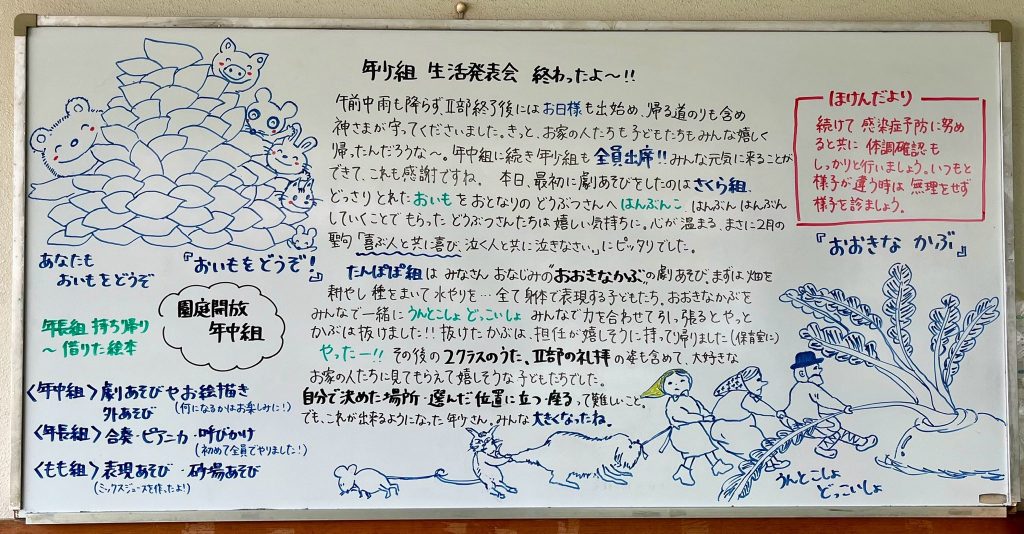 年少組 生活発表会 終わったよ～!!
午前中雨も降らず、Ⅱ部終了後にはお日様も出始め、帰る道のりも含め
神さまが守ってくださいました。きっと、お家の人たちも子どもたちもみんな嬉しく
帰ったんだろうな～。年中組に続き年少組も全員出席!!みんな元気に来ることが
できて、これも感謝ですね。 本日、最初に劇あそびをしたのはさくら組、
どっさりとれたおいもをおとなりのどうぶつさんへはんぶんこ はんぶん はんぶん
していくことでもらったどうぶつさんたちは嬉しい気持ちに。心が温まる、まさに2月の
聖句「喜ぶ人と共に喜び、泣く人と共に泣きなさい。」にピッタリでした。
たんぽぽ組は みなさん おなじみの"おおきなかぶ"の劇あそび。まずは畑を
耕やし種をまいて水やりを…全て身体で表現する子どもたち。おおきなかぶを
みんなで一緒にうんとこしょ どっこいしょ みんなで力を合わせて引っ張るとやっと
かぶは抜けました!!抜けたかぶは、担任が嬉しそうに持って帰りました(保育室に)
やったー!! その後の2クラスのうた、Ⅱ部の礼拝の姿も含めて、大好きな
お家の人たちに見てもらえて嬉しそうな子どもたちでした。
自分で決めた場所・選んだ位置に立つ・座るって難しいこと。
でも、これが出来るようになった年少さん。みんな大きくなったね。
ほけんだより
続けて感染症予防に努め
ると共に体調確認も
しっかりと行いましょう。いつもと
様子が違う時は無理をせず
様子を診ましょう。
『おおきな かぶ』
あなたも
おいもをどうぞ
『おいもをどうぞ!』
園庭開放
年中組
年長組 持ち帰り
～借りた絵本
〈年中組〉劇あそびやお絵描き
外あそび (何になるかはお楽しみに!)
〈年長組〉合奏・ピアニカ・呼びかけ
(初めて全員でやりました!)
〈もも組〉表現あそび・砂場あそび
(ミックスジュースを作ったよ!)
うんとこしょ
どっこいしょ